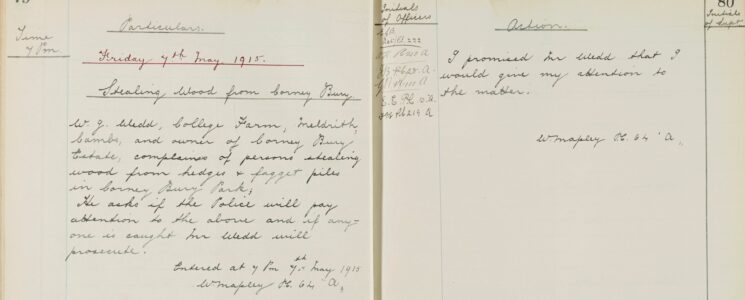 Particulars.
Time
7 Pm
Friday 7th May 1915.
Stealing Wood from Corney Bury
W. G. Wedd, College Farm, Meldrith,
Cambs, and owner of Corney Bury
Estate, complains of persons stealing
wood from hedges & fagget piles
in Corney Bury Park;
He asks if the Police will pay
attention to the above and if any-
one is caught Mr Wedd will
prosecute.
Entered at 7 Pm 7th May 1915
W Mapley P.C. 64 A,
Initials
of Officers
Action.
80
Initials
of Supt
I promised Mr Wedd that I
would give my attention to
the matter.
W Mapley P.C. 64 A,